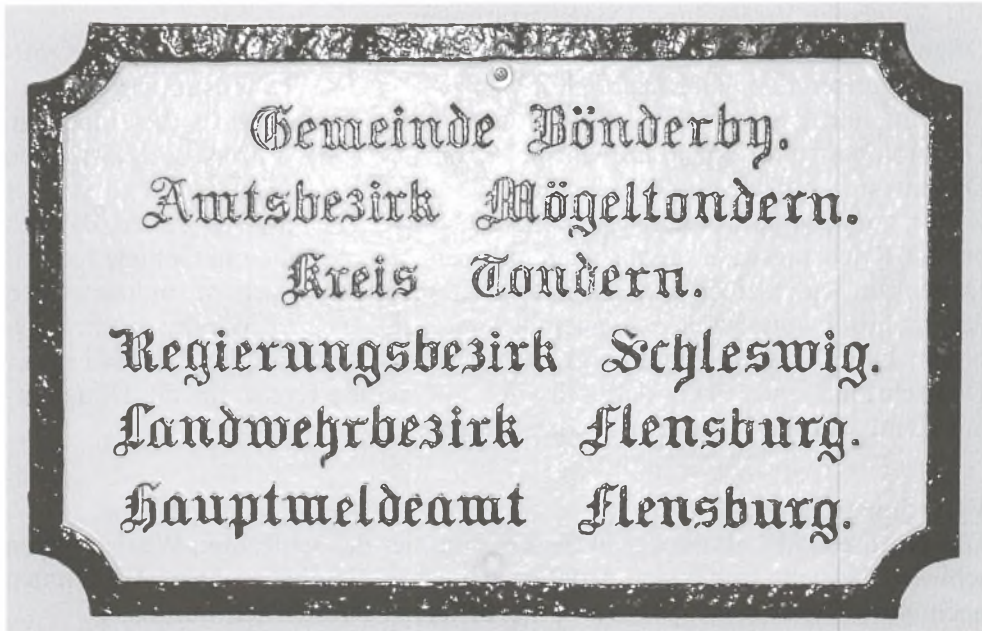 Gemeinde Bönderby.
Amtsbezirk Mögeltondern.
Kreis Tondern.
Regierungsbezirk Schleswig.
Landwehrbezirk Flensburg.
Hauptmeldeamt Flensburg.